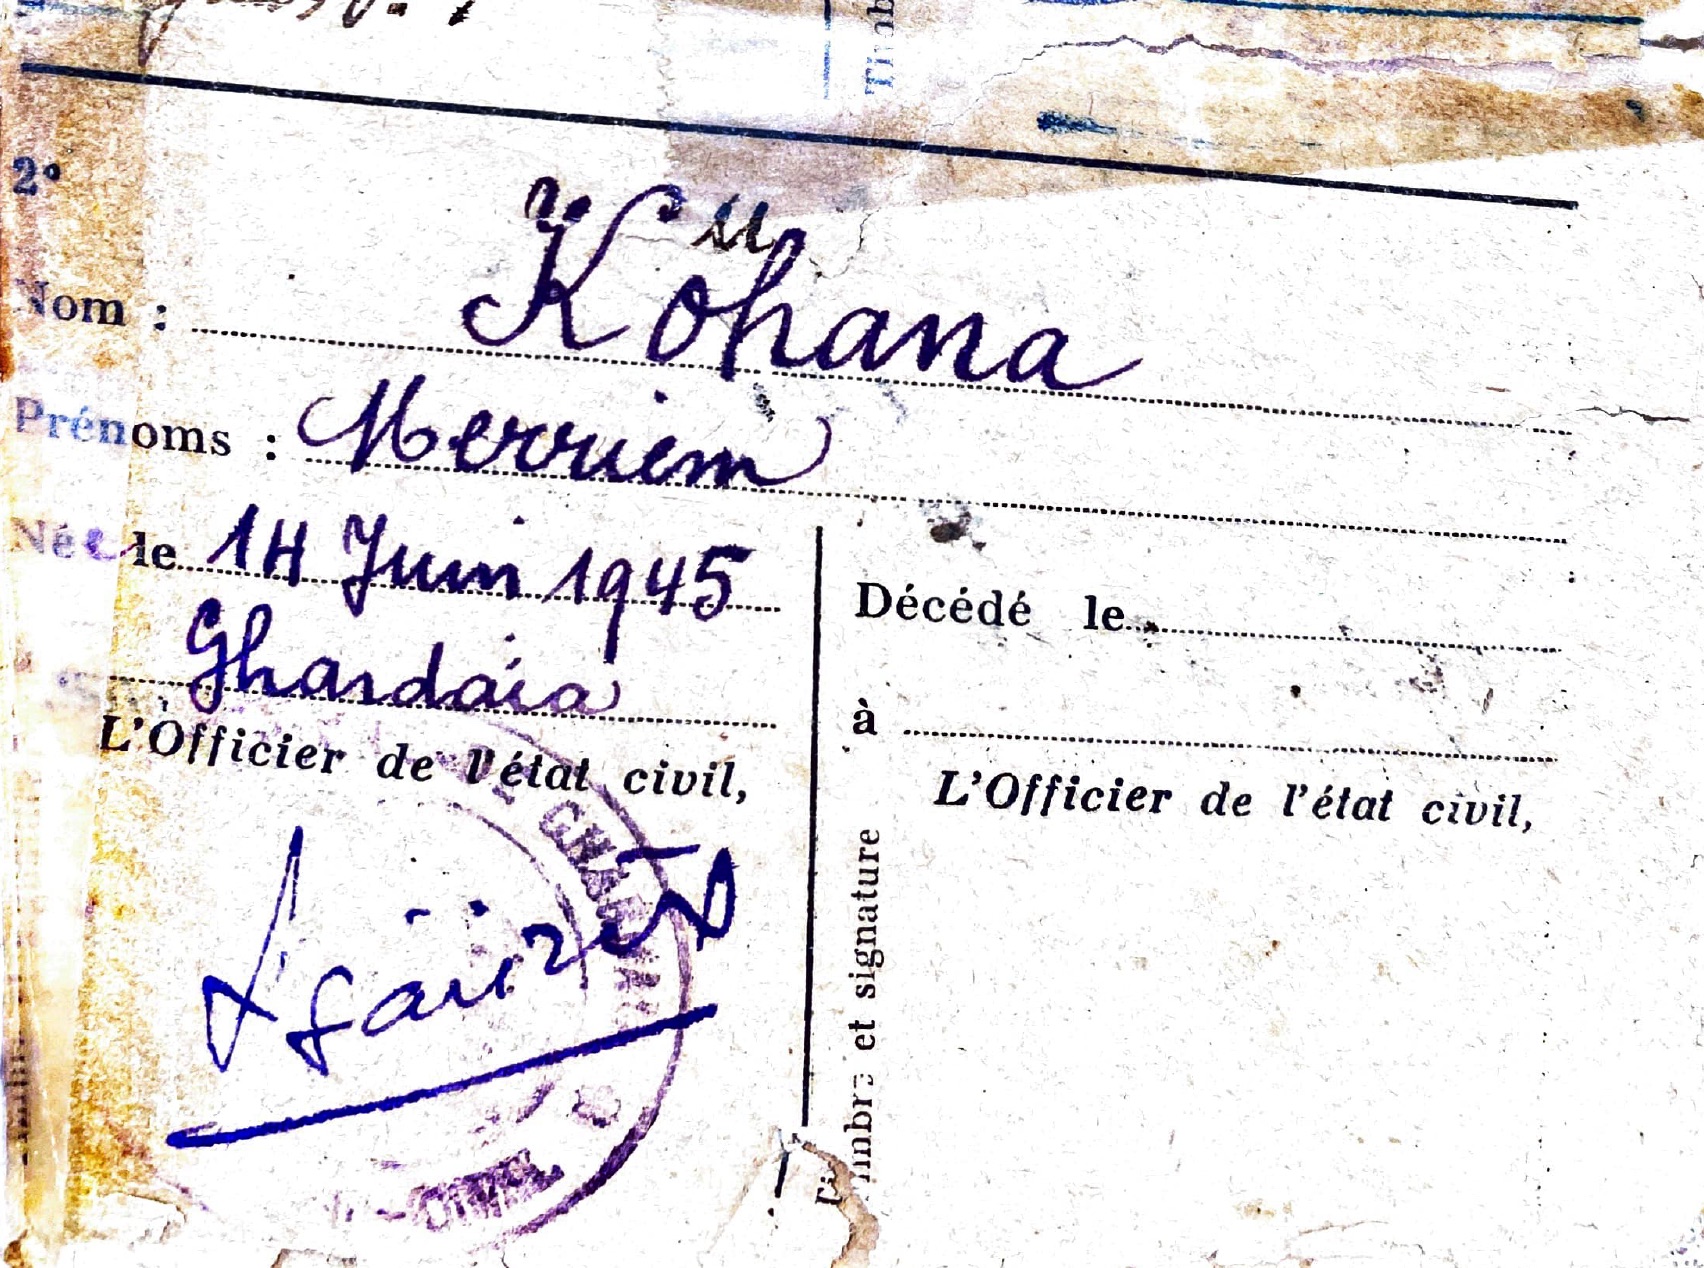 2°
u
Nom : Köhana
Prénoms : Merriem
Née le 14 Juin 1945
à Ghardaia
L'Officier de l'état civil,
Décédé le
à
L'Officier de l'état civil,
Timbre et signature
CIVIL